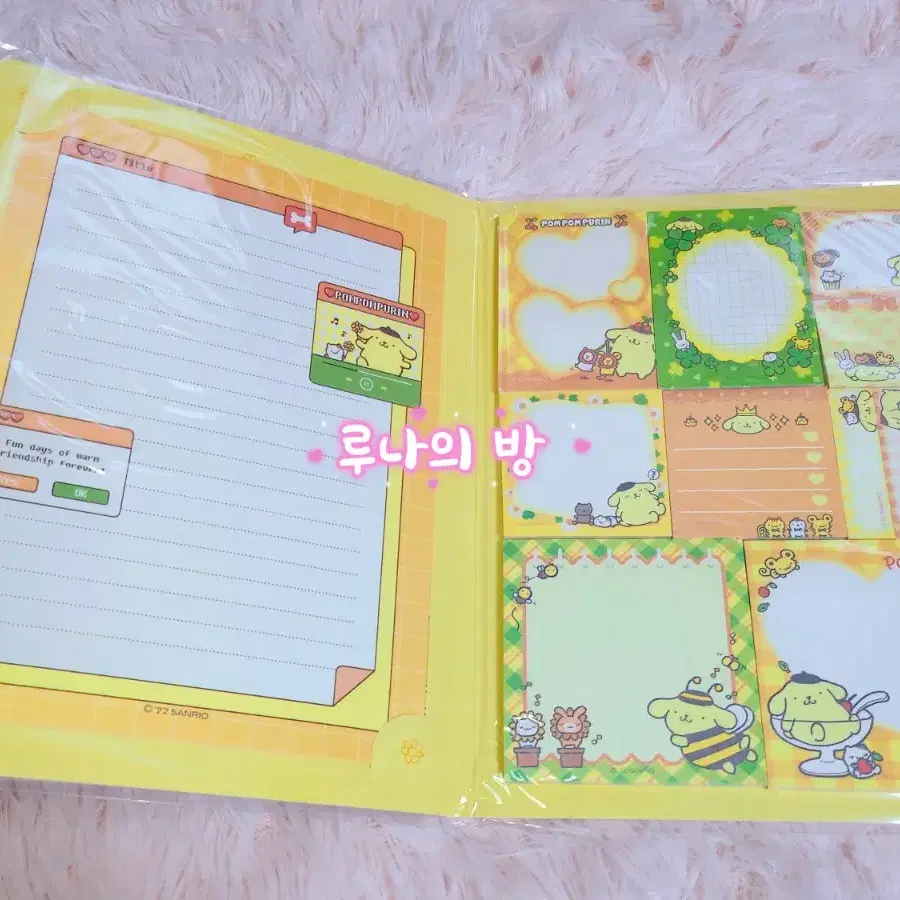 Title
POMPOMPURIN
Fun days of warm
friendship forever.
Yes
OK
© '22 SANRIO
POMPOMPURIN
루나의 방